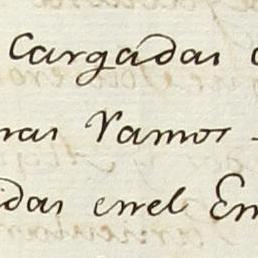 Cargadas
mas Vamos
idas enel Em